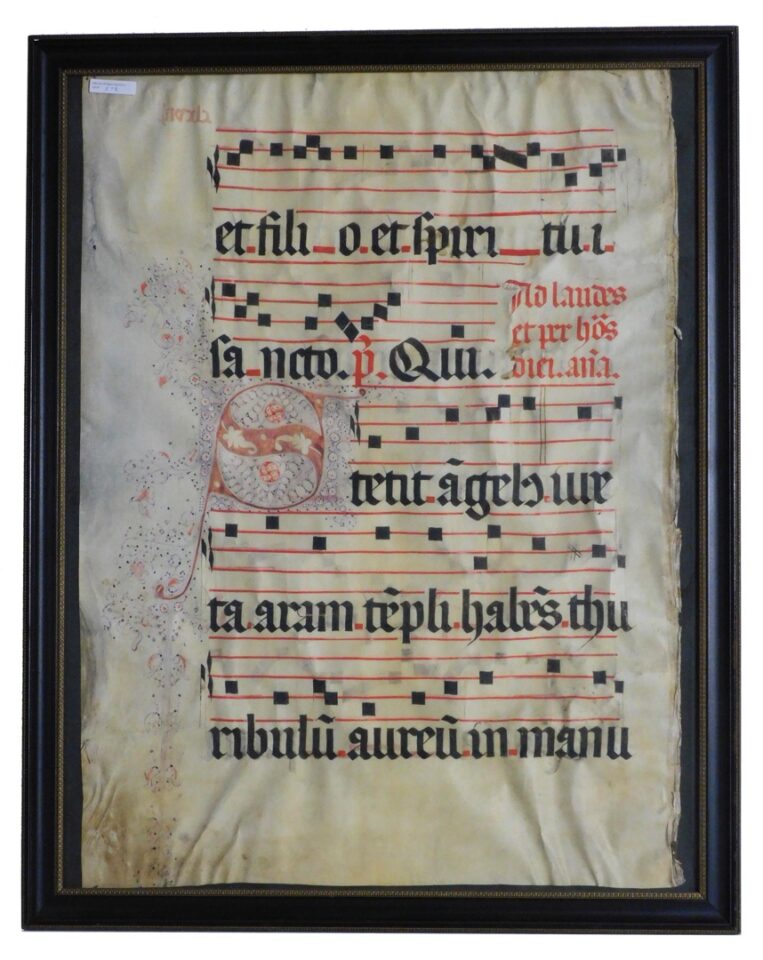 et fili o et spiri tu i
sa ncto. p̃. Qui.
Ad laudes
et per hõs
diei. añã.
Stetit ãgelꝰ iux
ta aram tẽpli habẽs thu
ribulũ aureũ in manu